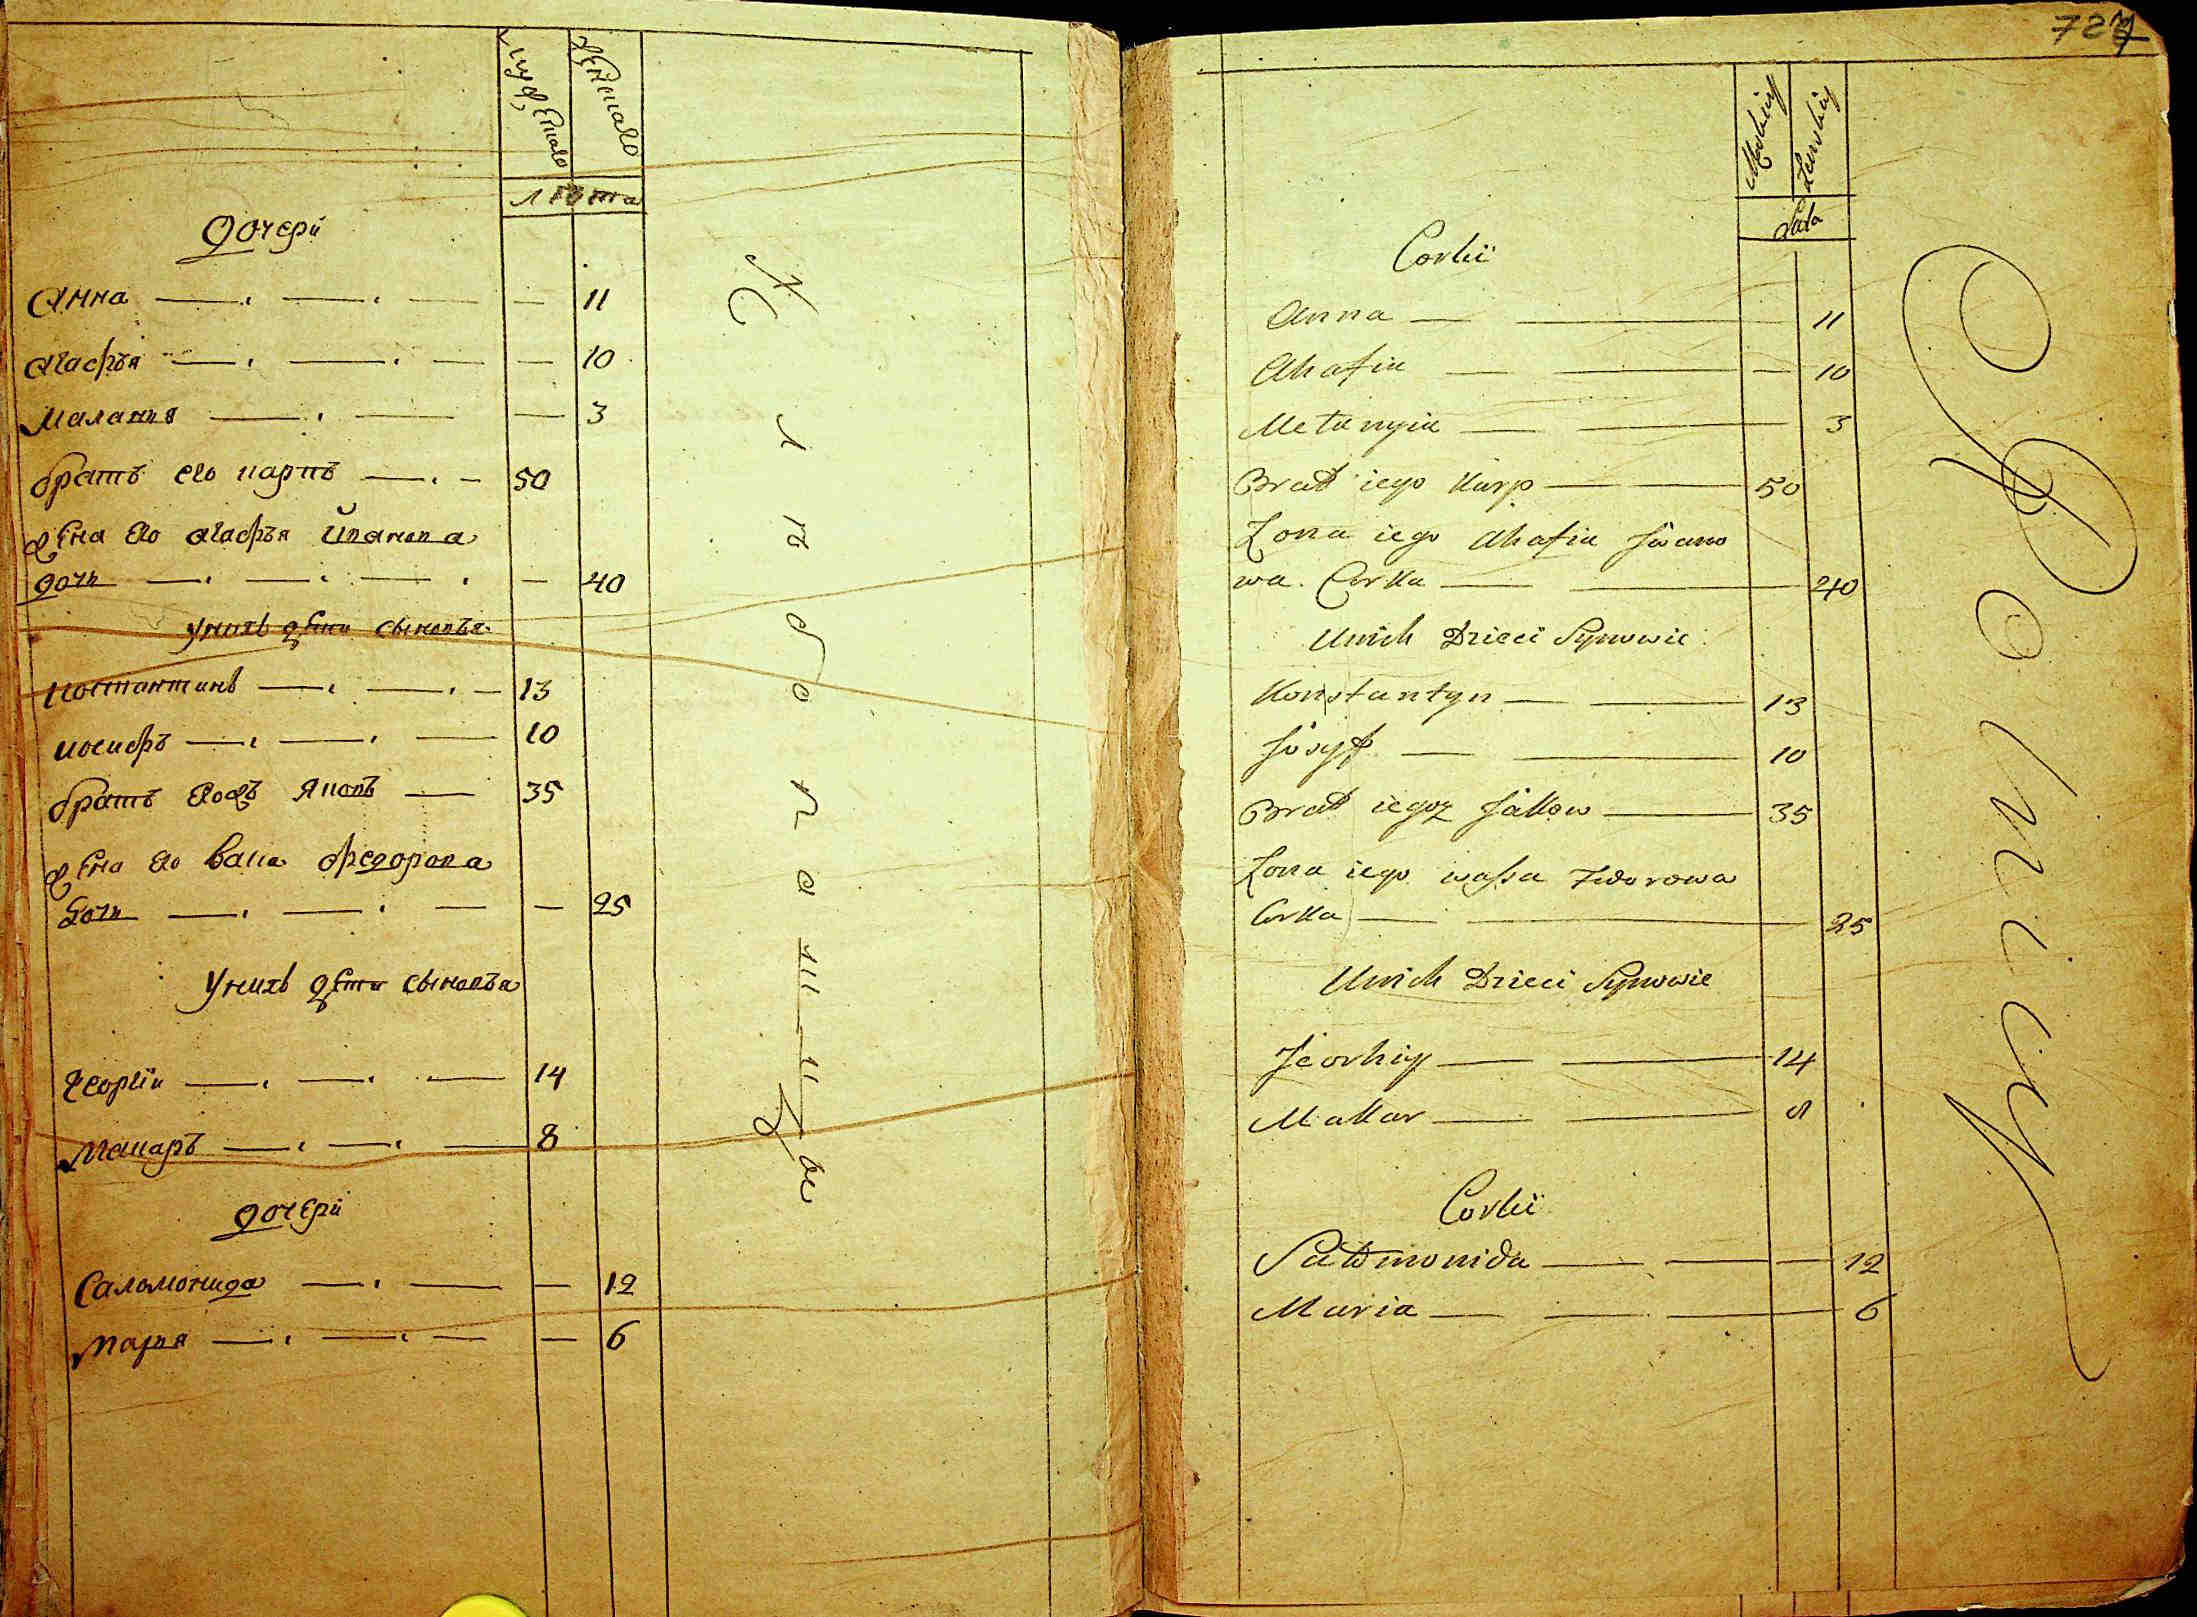 727
мужеска
женска
лета
дочери
Анна 11
Агафъя 10
Маланя 3
братъ его карпъ 50
жена его Агафъя Иванова
дочь 40
У нихъ дети сыновъя
Костантинъ 13
Иосифъ 10
братъ егожъ Яковъ 35
жена его васа федорова
дочь 25
У нихъ дети сыновъя
Георгии 14
Макаръ 8
дочери
Саломонида 12
Маръя 6
Хлебопашцы
Męskiey
Żenskiey
Lata
Corki
Anna 11
Ahafia 10
Melanyia 3
Brat iego Karp 50
Zona iego Ahafia Jwano
wa Corka 40
Unich Dzieci Synowie
Konstantyn 13
Josyf 10
Brat iegoz Jakow 35
Zona iego wassa Fedorowa
Corka 25
Unich Dzieci Synowie
Jeorhiy 14
Makar 8
Corki
Salomonida 12
Maria 6
Rolnicy